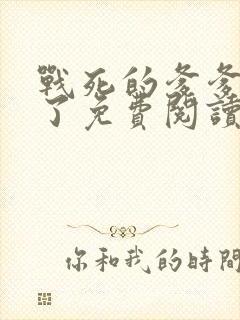 戰死的爹爹
了免費閱讀
你和我的時間